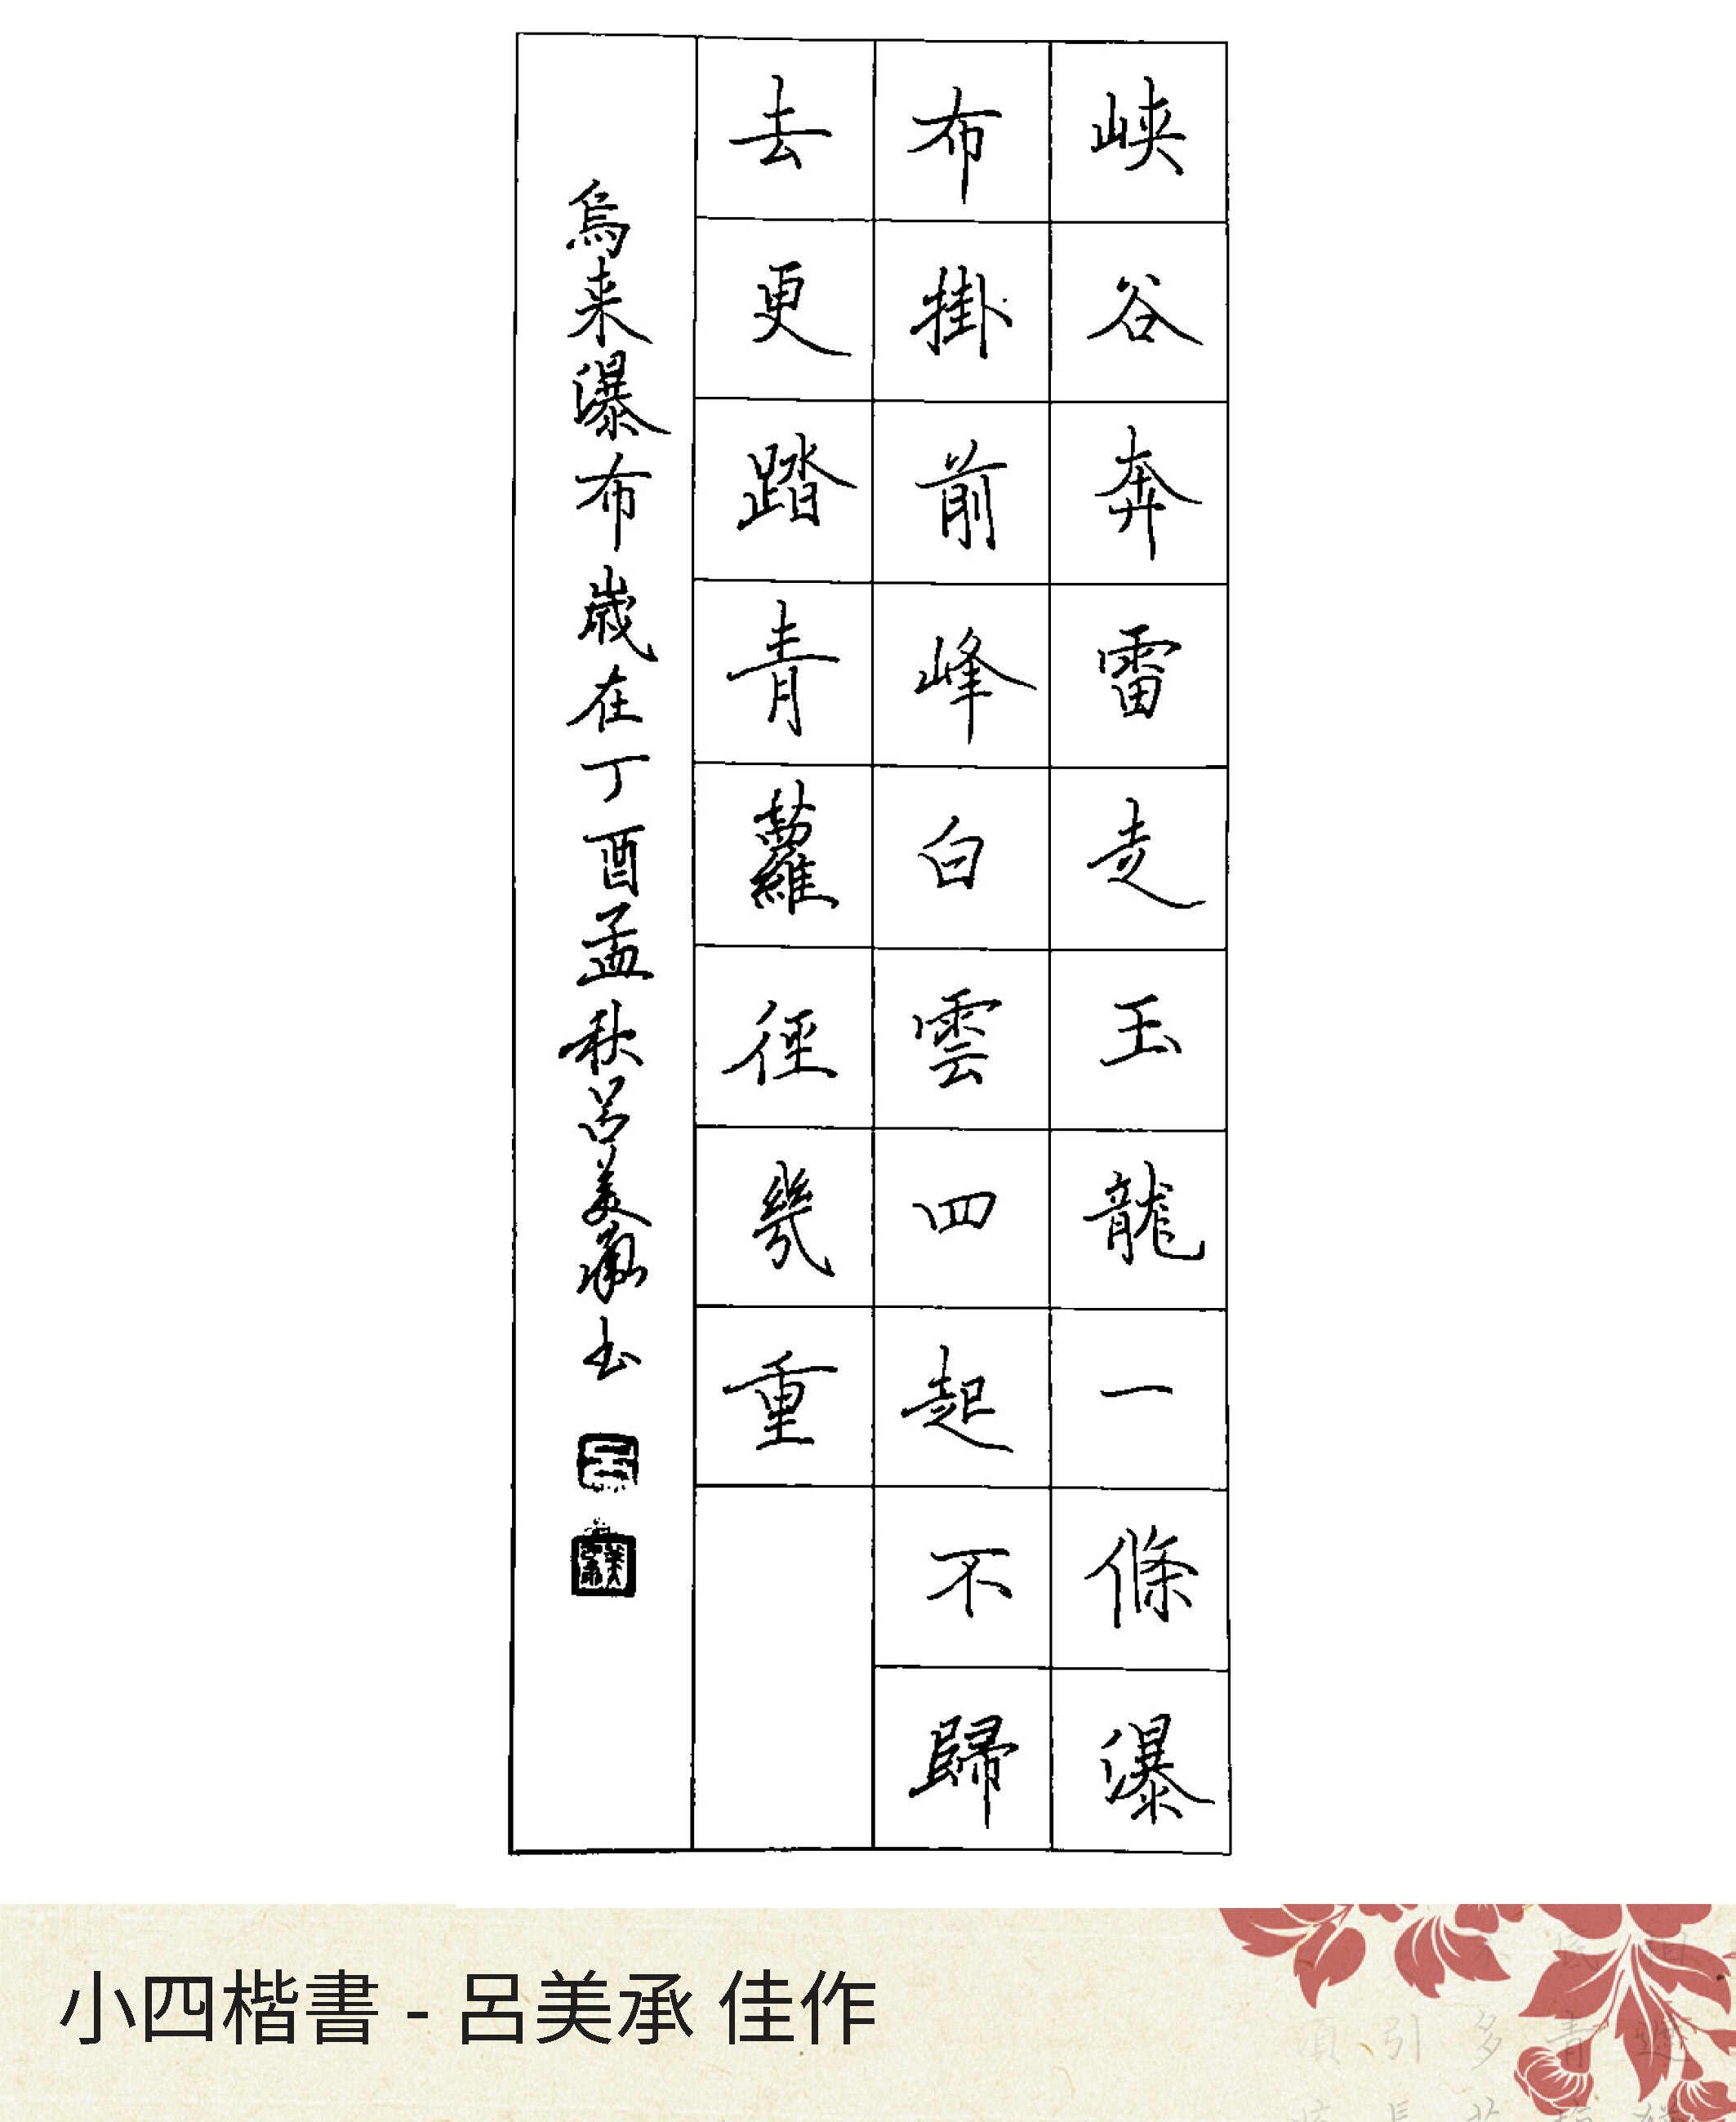 峽谷奔雷走玉龍一條瀑
布掛前峰白雲四起不歸
去更踏青蘿徑幾重
烏来瀑布歲在丁酉孟秋呂美承书
小四楷書 - 呂美承 佳作